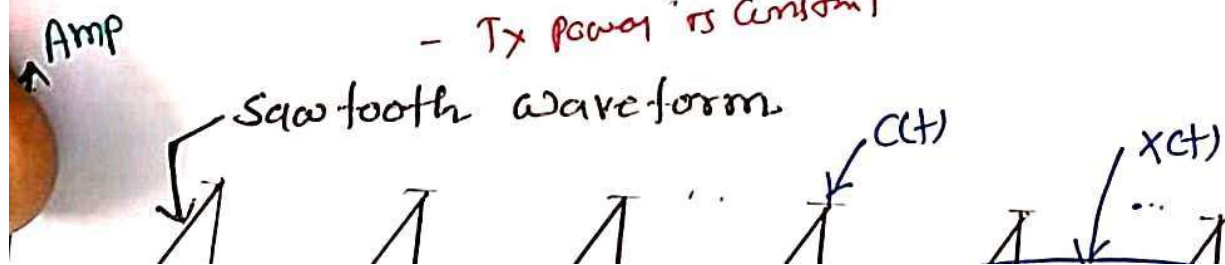 - Tx power is constant
Amp
Sawtooth waveform
C(t)
X(t)